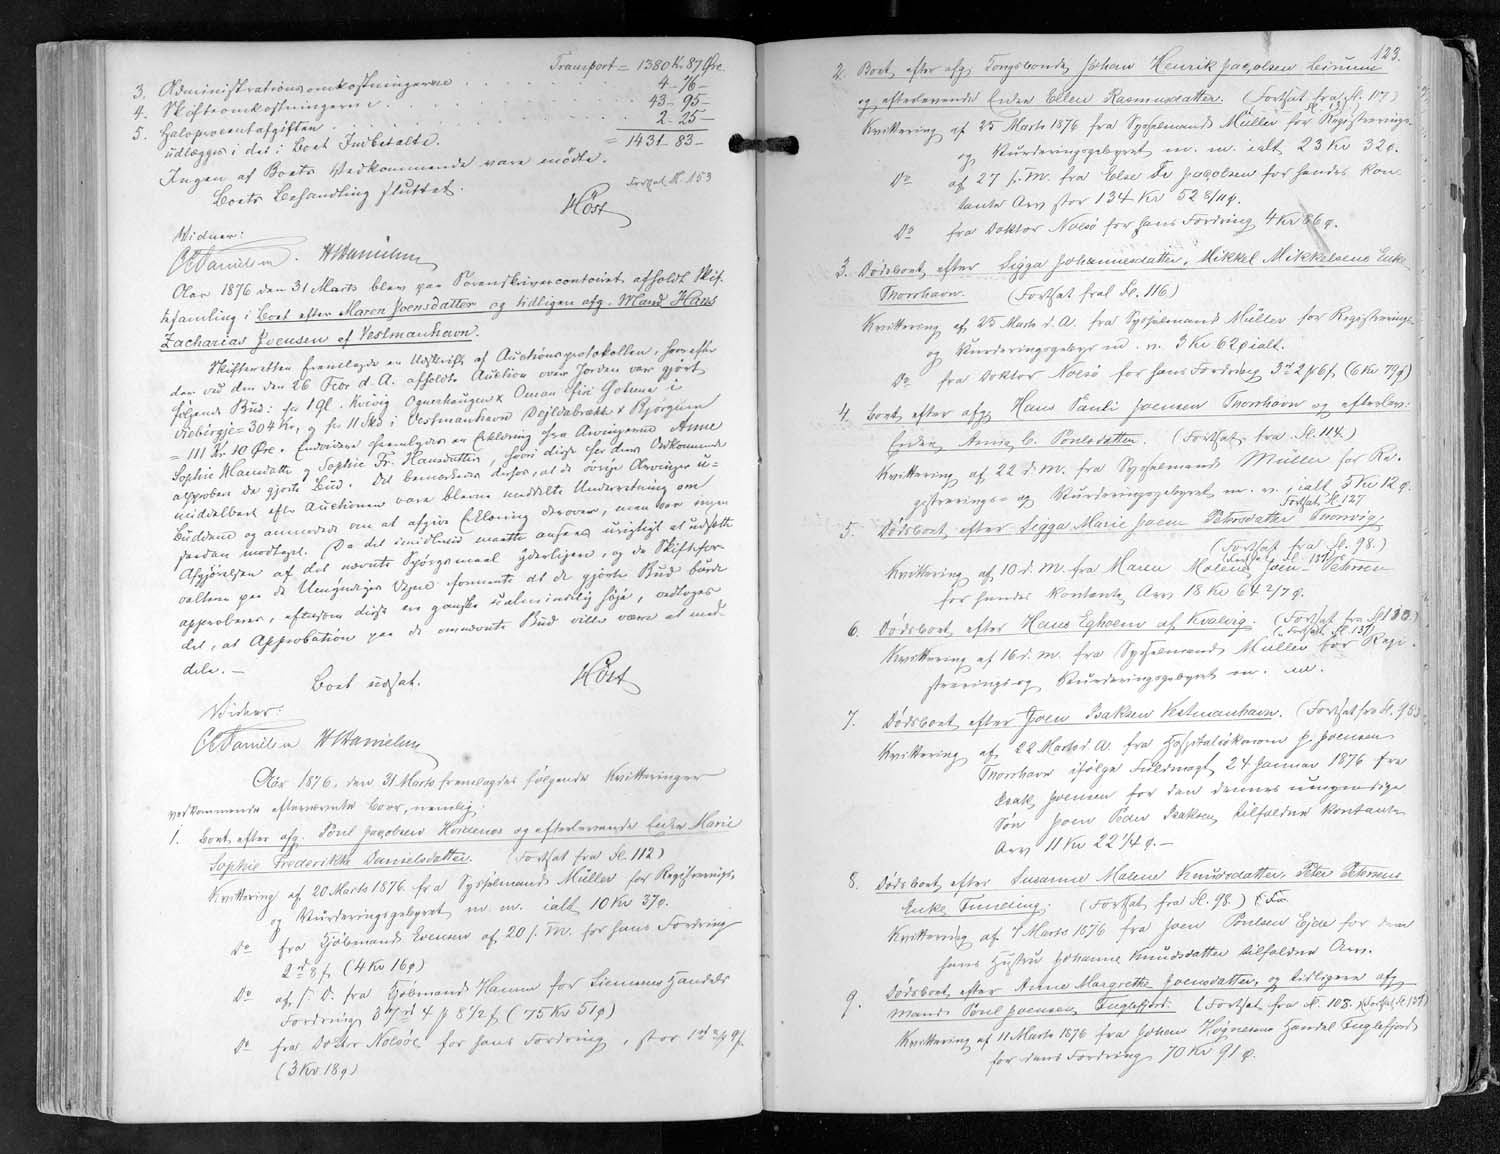 Transport = 1380 Kr. 87 Øre
3. Administrationsomkostningerne . . . 4 - 76 -
4. Skifteomkostningerne . . . 43 - 95 -
5. Halvprocentafgiften . . . 2 - 25 -
udlægges i det i Boet Indbetalte. = 1431 - 83 -
Ingen af Boets Vedkommende vare mødte.
Boets Behandling sluttet. Fortsat fl. 153
Høst
Vidner:
C. Danielsen. H. Danielsen
Aar 1876 den 31 Marts blev paa Sorenskrivercontoiret afholdt Skif-
tesamling i Boet efter Maren Joensdatter og tidligere afg. Mand Hans
Zacharias Joensen af Vestmanhavn.
Skifteretten fremlagde en Udskrift af Auctionsprotokollen, hvorefter
der ved den den 26 Febr d. A. afholdte Auction over Jorden var gjort
følgende Bud: for 1 gl.
= 304 Kr, og for 11 Skd i Vestmanhavn
= 111 Kr. 10 Øre. Endvidere fremlagdes en Erklæring fra Arvingerne Anne
Sophie Hansdatter og Sophie Fr. Hansdatter, hvori disse for deres Vedkommende
approbere de gjorte Bud. Det bemærkedes derhos, at de øvrige Arvinger u-
middelbart efter Auctionen vare blevne meddelte Underretning om
Buddene og anmodede om at afgive Erklæring derover, men var ingen
saadan modtaget. Da det imidlertid maatte ansees urigtigt at udsætte
Afgjørelsen af det nævnte Spørgsmaal yderligere, og da Skiftefor-
valteren paa de Umyndiges Vegne formente at de gjorte Bud burde
approberes, eftersom disse ere ganske ualmindelig høje, vedtoges
det, at Approbation paa de omnævnte Bud ville være at med-
dele. -
Boet udsat. Høst
Vidner:
C. Danielsen H. Danielsen
Aar 1876, den 31 Marts fremlagdes følgende Kvitteringer
vedkommende efternævnte Boer, nemlig:
1. Boet efter afg. Poul Jacobsen og efterlevende Enke Marie
Sophie Frederikke Danielsdatter. (Fortsat fra fl. 112)
Kvittering af 20 Marts 1876 fra Sysselmand Müller for Registrerings-
og Vurderingsgebyret m. m. ialt 10 Kr 37 ø.
Do fra Kjøbmand Evensen af 20 s. M. for hans Fordring
2 rd 8 s. (4 Kr 16 ø)
Do af s. D. fra Kjøbmand Hansen for Siemsens Handels
Fordring 37 rd 4 p 8 1/2 s (75 Kr 51 ø)
Do fra Doktor Nolsøe for hans Fordring, stor 1 rd
(3 Kr 18 ø)
123.
2. Boet efter afg. Kongsbonde Johan Henrik Jacobsen
og efterlevende Enke Ellen Rasmusdatter. (Fortsat fra fl. 107)
Kvittering af 25 Marts 1876 fra Sysselmand Müller for Registrerings-
og Vurderingsgebyret m. m. ialt 23 Kr 32 ø.
Do af 27 s. M. fra Else Jacobsen for hendes kon-
tante Arv stor 134 Kr 52 8/11 ø.
Do fra Doktor Nolsø for hans Fordring 4 Kr 86 ø.
3. Dødsboet efter Sigga Johannesdatter, Mikkel Mikkelsens Enke
Thorshavn. (Fortsat fra fl. 116)
Kvittering af 25 Marts d. A. fra Sysselmand Müller for Registrerings-
og Vurderingsgebyr m. v. 3 Kr 62 ø ialt.
Do fra Doktor Nolsø for hans Fordring 3 rd 2 p 6 s. (6 Kr 79 ø)
4. Boet efter afg. Hans Pauli Joensen Thorshavn og efterlev.
Enke Anna C. Poulsdatter. (Fortsat fra fl. 114.)
Kvittering af 22 d. M. fra Sysselmand Müller for Re-
gistrerings- og Vurderingsgebyret m. v. ialt 5 Kr 12 ø.
Fortsat fl. 127
5. Dødsboet efter Sigga Marie Joen Petersdatter Thorsvig.
(Fortsat fra fl. 98.)
Kvittering af 10 d. M. fra Maren Malene Joen-Petersen
for hendes kontante Arv 18 Kr 64 2/7 ø.
6. Dødsboet efter Hans Egholm af Kvalvig (Fortsat fra fl.
(Fortsat fl. 137)
Kvittering af 16 d. M. fra Sysselmand Müller for Regi-
strerings og Vurderingsgebyret m. m.
7. Dødsboet efter Joen Isaksen Vestmanhavn. (Fortsat fra fl. 95)
Kvittering af 22 Marts d A. fra Hospitalsøkonom J. Joensen
Thorshavn ifølge Fuldmagt 24 Januar 1876 fra
Isak Joensen for den dennes umyndige
Søn Joen Peder Isaksen tilfaldne kontante
Arv 11 Kr 22 1/4 ø. -
8. Dødsboet efter Susanne Malene Knudsdatter, Peter Petersens
Enke Funding. (Fortsat fra fl. 98.)
Kvittering af 7 Marts 1876 fra Joen Poulsen Ejde for den
hans Hustru Johanne Knudsdatter tilfaldne Arv.
9. Dødsboet efter Anne Margrethe Joensdatter, og tidligere afg
Mand Poul Joensen, Fuglefjord. (Fortsat fra fl. 108.)
Kvittering af 11 Marts 1876 fra Johan Høgnesens Handel Fuglefjord
for dens Fordring 70 Kr 91 ø.